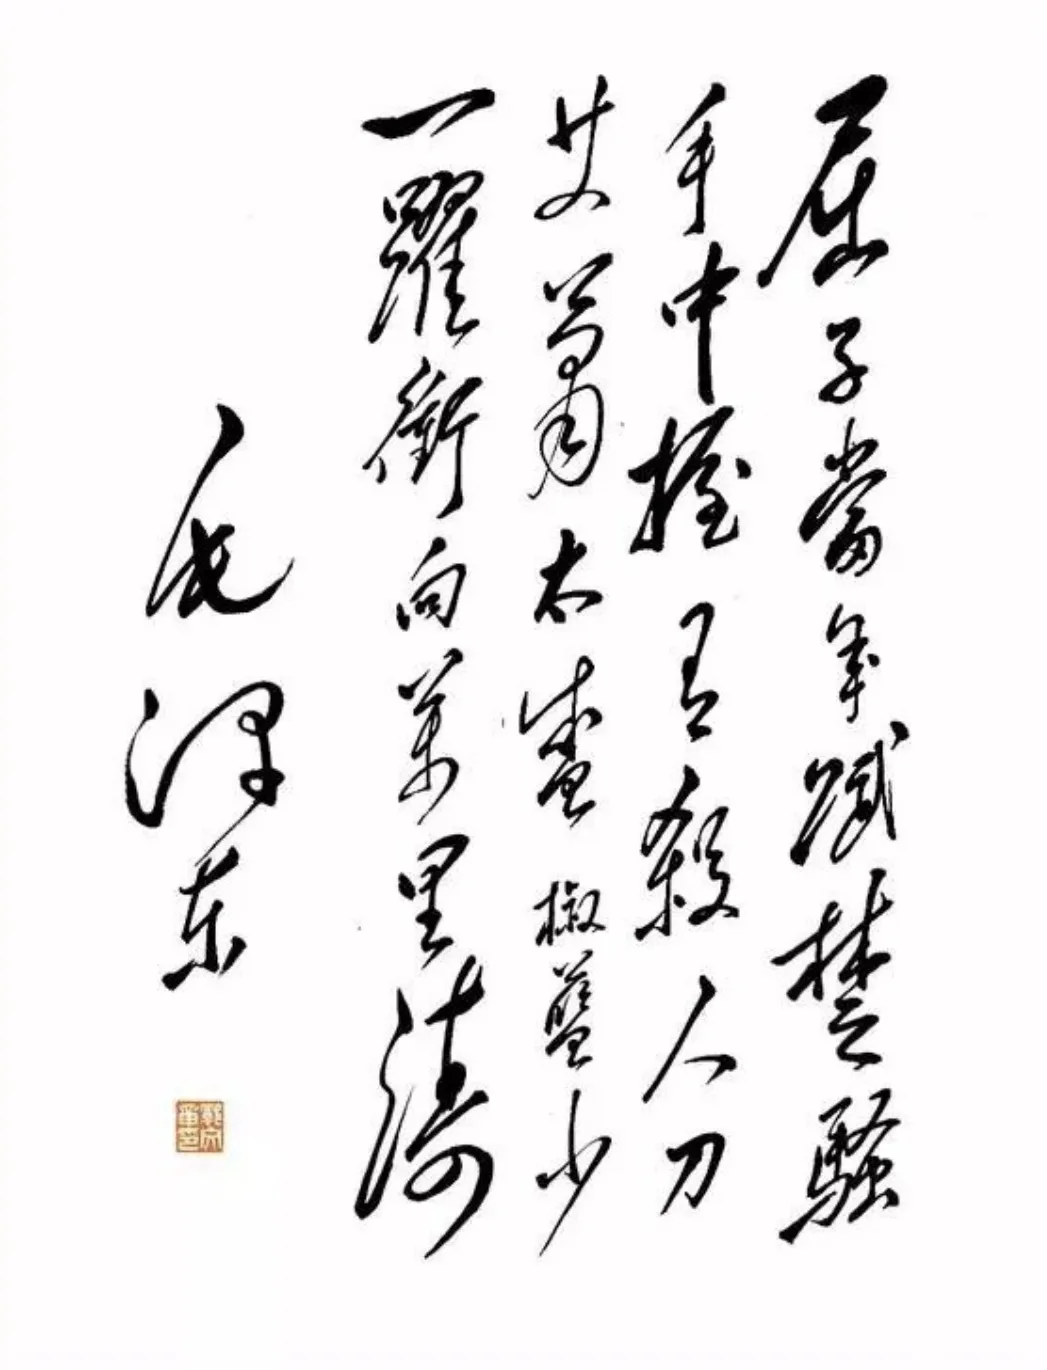 屈子當年賦楚騷
手中握有殺人刀
艾蕭太盛椒藍少
一躍衝向萬里濤
毛澤東